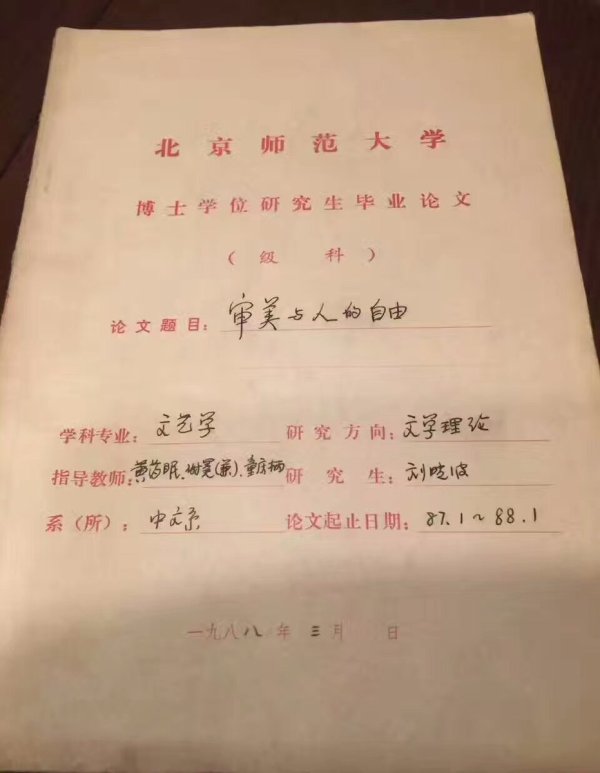 北京师范大学
博士学位研究生毕业论文
（级 科）
论文题目：审美与人的自由
学科专业：文艺学 研究方向：文学理论
指导教师：黄药眠、谢冕(兼)、童庆炳 研究生：刘晓波
系（所）：中文系 论文起止日期：87.1～88.1
一九八八年三月 日